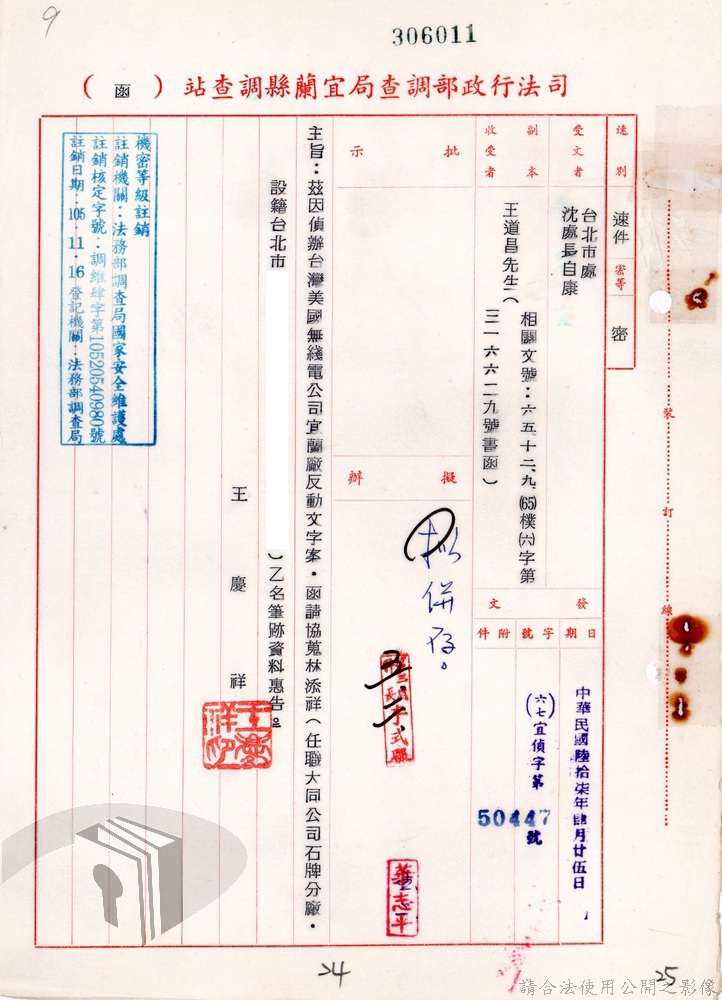 9
306011
司法行政部調查局宜蘭縣調查站（函）
速別
速件
密等
密
受文者
台北市處
沈處長自康
副本
收受者
王道昌先生（相關文號：六五十二、九、(65)樸㈥字第
三一六六二九號書函）
批示
擬辦
擬併存。
發文
日期
中華民國陸拾柒年肆月廿五日
字號
（六七）宜偵字第50447號
附件
主旨：茲因偵辦台灣美國無綫電公司宜蘭廠反動文字案，函請協蒐林添祥（任職大同公司石牌分廠，
設籍台北市
）乙名筆跡資料惠告。
王慶祥
機密等級註銷
註銷機關：法務部調查局國家安全維護處
註銷核定字號：調維肆字第10520540980號
註銷日期：105.11.16登記機關：法務部調查局
裝
訂
線
24
25
請合法使用公開之影像